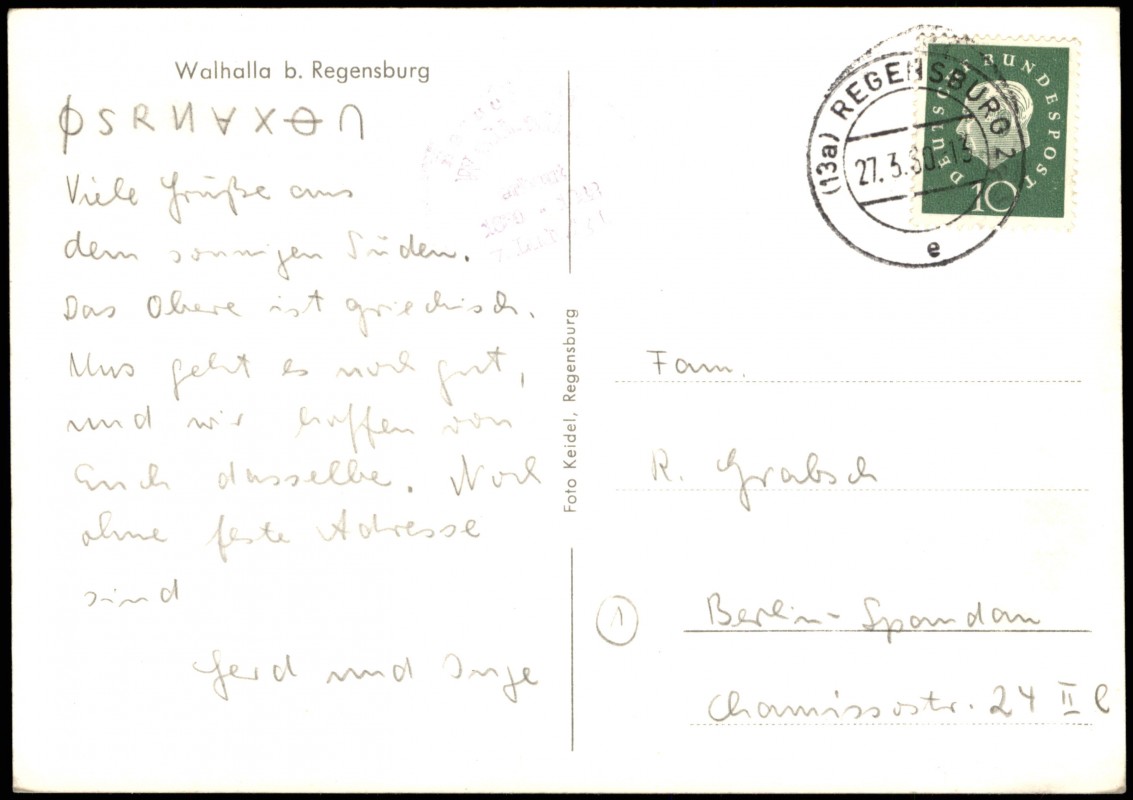 Walhalla b. Regensburg
Viele Grüße aus
dem sonnigen Süden.
Das Obere ist griechisch.
Uns geht es noch gut,
und wir hoffen von
Euch dasselbe. Noch
ohne feste Adresse
sind
Gerd und Inge
Foto Keidel, Regensburg
(13a) REGENSBURG 2
27.3.60-13
e
DEUTSCHE BUNDESPOST
10
Fam.
R. Grabsch
1
Berlin-Spandau
Chamissostr. 24 II l